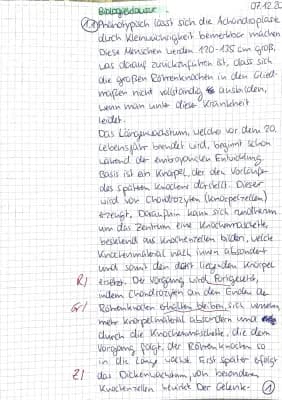 Biologieklausur 07.12.20
1.1 Phänotypisch lässt sich die Achondroplasie
durch Kleinwüchsigkeit bemerkbar machen.
Diese Menschen werden 120-135 cm groß,
was darauf zurückzuführen ist, dass sich
die großen Röhrenknochen in den Glied-
maßen nicht vollständig ausbilden,
wenn man unter dieser Krankheit
leidet.
Das Längenwachstum, welches vor dem 20.
Lebensjahr beendet wird, beginnt schon
während der embryonalen Entwicklung.
Basis ist ein Knorpel, der den Vorläufer
des späteren Knochens darstellt. Dieser
wird von Chondrozyten (Knorpelzellen)
erzeugt. Daraufhin kann sich rundherum
um das Zentrum eine Knochenmanschette
bestehend aus Knochenzellen bilden, welche
Knochenmaterial nach innen absondert
und somit den dort liegenden Knorpel
R/ ersetzt. Der Vorgang wird fortgesetzt,
indem Chondrozyten an den Enden der
Gr/ Röhrenknochen erhalten bleiben, sich vermehren
mehr Knorpelmaterial absondern und
durch die Knochenmanschette, die dem
Vorgang folgt, der Röhrenknochen so
in die Länge wächst. Erst später erfolgt
Z/ das Dickenwachstum, von besonderen
Knochenzellen bewirkt. Der Gelenk-
1